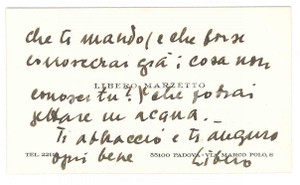 che ti mando (e che forse
conoscerai già; cosa non
LIBERO MARZETTO
conosci tu? ) che potrai
gettare in acqua. _
Ti abbraccio e ti auguro
TEL. 2210 35100 PADOVA - VIA MARCO POLO, 8
ogni bene Libero